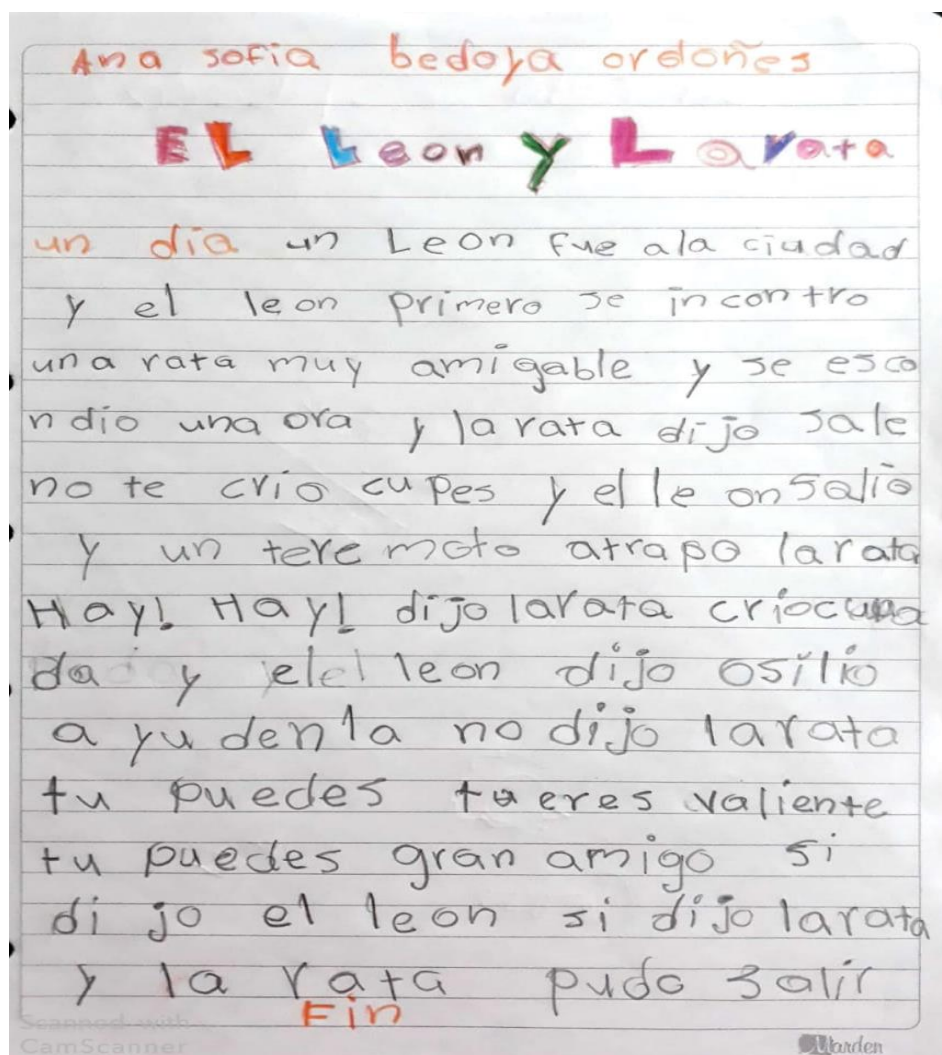 Ana sofia bedoya ordoñes
EL Leon y Larata
un dia un Leon fue ala ciudad
y el leon primero se incontro
una rata muy amigable y se esco
ndio una ora y larata dijo sale
no te crio cupes y elle onsalio
y un tere moto atrapo larata
Hay! Hay! dijo larata
da y el leon dijo osilio
a yu denla no dijo larata
tu puedes tu eres valiente
tu puedes gran amigo si
di jo el leon si dijo larata
y la rata pudo salir
Fin
Scanned with
CamScanner
Marden